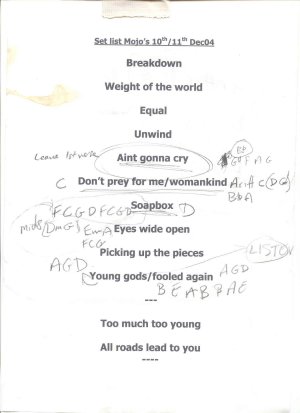 Set list Mojo's 10th/11th Dec04
Breakdown
Weight of the world
Equal
Unwind
Leave 1st verse Aint gonna cry
C Don't prey for me/womankind
B A
Soapbox D
FCGDFCGD
Eyes wide open
FCG
Picking up the pieces
AGD Young gods/fooled again AGD
BEABBAE
---
Too much too young
All roads lead to you
----